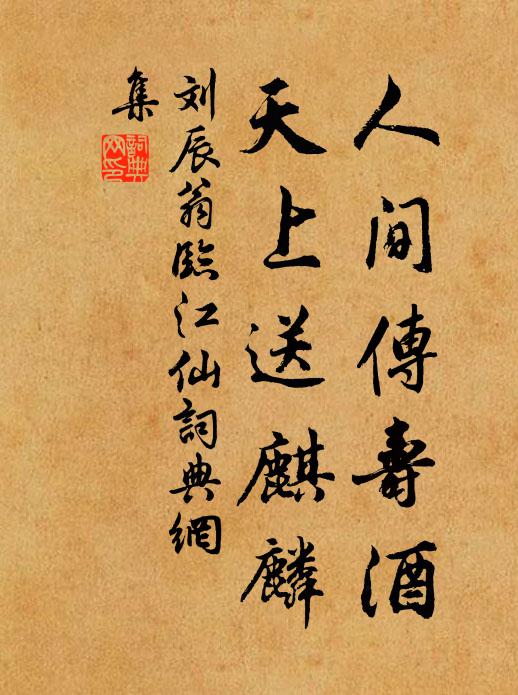 人間傳壽酒
天上送麒麟
刘辰翁臨江仙詞典網
集
詞典
网印